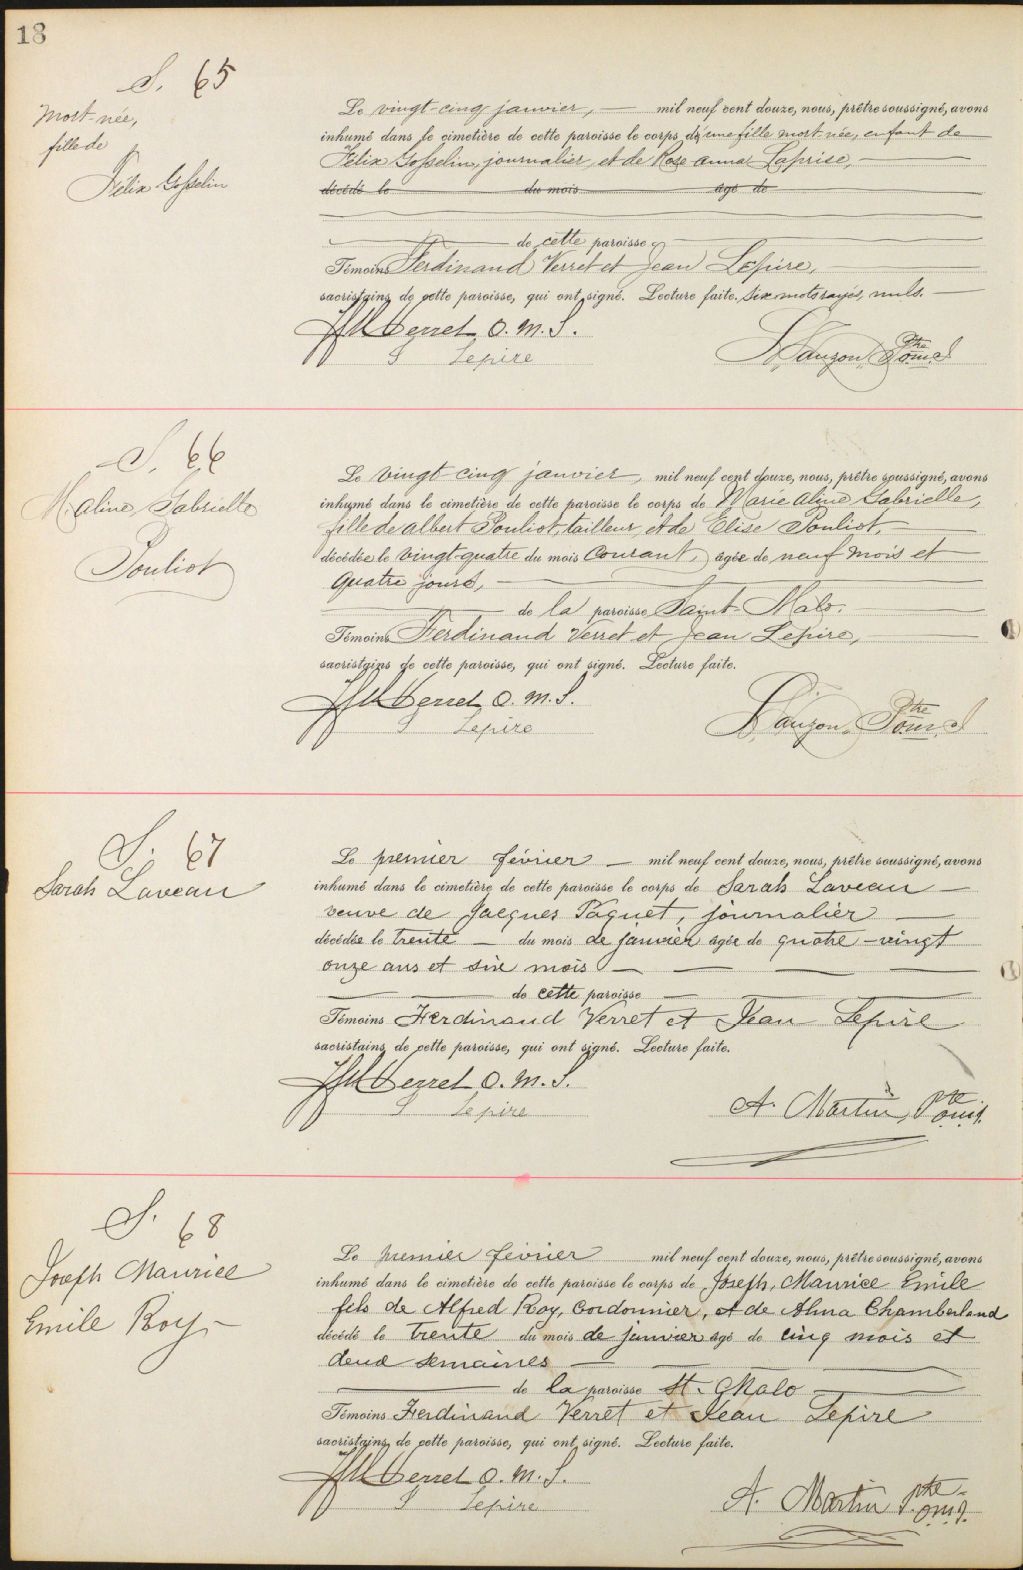 18
S. 65
Mort-née,
fille de
Félix Gosselin
Le vingt-cinq janvier, — mil neuf cent douze, nous, prêtre soussigné, avons
inhumé dans le cimetière de cette paroisse le corps d'une fille mort-née, enfant de
Félix Gosselin, journalier, et de Rose anna Laprise, —
décédé le du mois âgé de
de cette paroisse,
Témoins Ferdinand Verret et Jean Lepire, —
sacristains de cette paroisse, qui ont signé. Lecture faite. Six mots rayés, nuls. —
Verret O. M. S.
J Lepire
Lauzon, Ptre o.m.i
S. 66
M. aline Gabrielle
Pouliot
Le vingt-cinq janvier, mil neuf cent douze, nous, prêtre soussigné, avons
inhumé dans le cimetière de cette paroisse le corps de Marie aline Gabrielle,
fille de albert Pouliot, tailleur, et de Elise Pouliot, —
décédée le vingt-quatre du mois Courant, âgée de neuf mois et
quatre jours, —
de la paroisse Saint-Malo.
Témoins Ferdinand Verret et Jean Lepire,
sacristains de cette paroisse, qui ont signé. Lecture faite.
Verret O. M. S.
J Lepire
Lauzon, Ptre o.m.i
S. 67
Sarah Laveau
Le premier février — mil neuf cent douze, nous, prêtre soussigné, avons
inhumé dans le cimetière de cette paroisse le corps de Sarah Laveau —
veuve de Jacques Paquet, journalier —
décédée le trente — du mois de janvier âgée de quatre-vingt
onze ans et six mois —
de cette paroisse
Témoins Ferdinand Verret et Jean Lepire
sacristains de cette paroisse, qui ont signé. Lecture faite.
Verret O. M. S.
J Lepire
A. Martin, Ptre o.m.i.
S. 68
Joseph Maurice
Emile Roy —
Le premier février mil neuf cent douze, nous, prêtre soussigné, avons
inhumé dans le cimetière de cette paroisse le corps de Joseph, Maurice Emile
fils de Alfred Roy, cordonnier, et de Alma Chamberland
décédé le trente du mois de janvier âgé de cinq mois et
deux semaines —
de la paroisse St-Malo
Témoins Ferdinand Verret et Jean Lepire
sacristains de cette paroisse, qui ont signé. Lecture faite.
Verret O. M. S.
J Lepire
A. Martin ptre o.m.i.